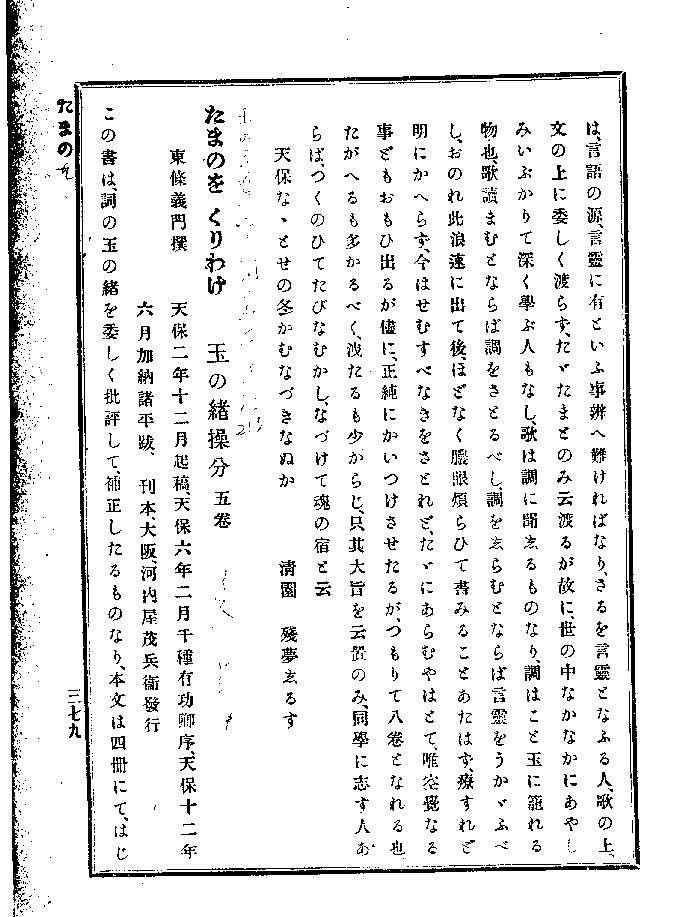 は、言語の源、言靈に有といふ事辨へ難ければなり、さるを言靈となふる人、歌の上、
文の上に委しく渡らず、たゞたまとのみ云渡るが故に、世の中なかなかにあやし
みいぶかりて深く學ぶ人もなし、歌は調に聞ゑるものなり、調はこと玉に籠れる
物也、歌讀まむとならば調をさとるべし、調を志らむとならば言靈をうかゞふべ
し、おのれ此浪速に出て後、ほどなく朦眼煩らひて書みることあたはず、療すれど
明にかへらず、今はせむすべなきをさとれど、たゞにあらむやはとて、唯空覺なる
事どもおもひ出るが儘に、正純にかいつけさせたるが、つもりて八卷となれる也
たがへるも多かるべく、洩たるも少からじ、只其大旨を云置のみ、同學に志す人あ
らば、つくのひてたびなむかし、なづけて魂の宿と云
天保なゝとせの冬かむなづきなぬか　淸園　殘夢志るす
たまのを くりわけ　玉の緒操分　五卷
東條義門撰　天保二年十二月起稿、天保六年二月千種有功卿序、天保十二年
六月加納諸平跋、刊本大阪、河内屋茂兵衞發行
この書は、詞の玉の緒を委しく批評して、補正したるものなり、本文は四冊にて、はじ
たまのを
三七九